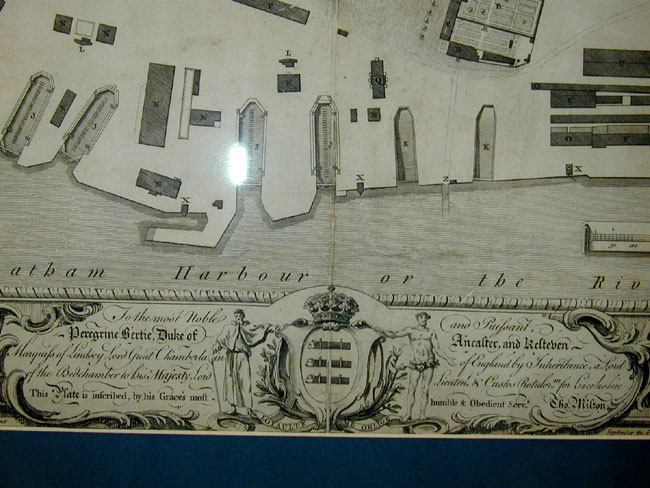 V
L
L
N
N
N
N
N
J
J
J
J
K
K
Q
B
U
U
O
V
X
X
Z
X
atham Harbour or the Riv
To the most Noble and Puissant,
Peregrine Bertie, Duke of Ancaster, and Kesteven
Marquiss of Lindsey, Lord Great Chamberlain of England by Inheritance, a Lord
of the Bedchamber to his Majesty, Lord Lieuten.t & Custos Rotulo.m for Lincolnshire
This Plate is inscribed, by his Graces most humble & Obedient Serv.t Tho. Milton
LOYAULTE ME OBLIGE